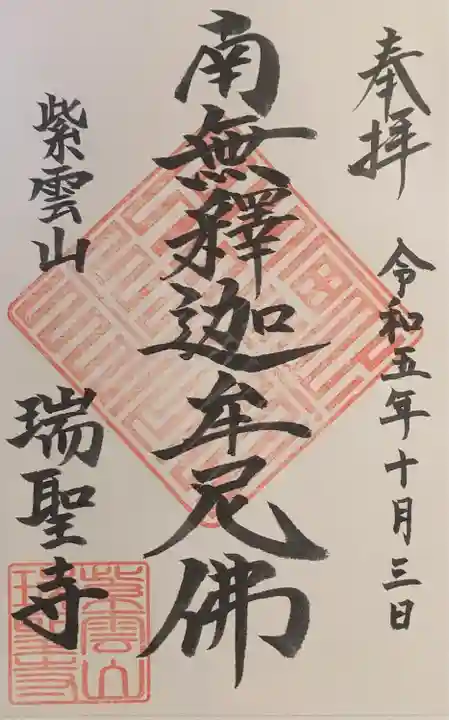 奉拝 令和五年十月三日
南無釋迦牟尼佛
紫雲山 瑞聖寺
紫雲山
瑞聖寺